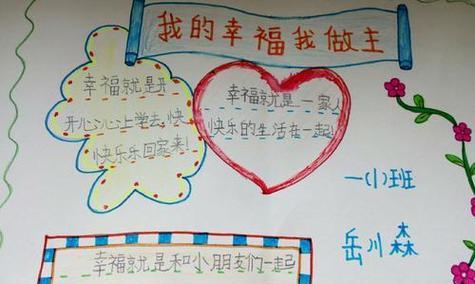 我的幸福我做主
幸福就是开
开心心上学去,快
快乐乐回家来!
幸福就是一家人
快乐的生活在一起!
一(1)班
岳川森
幸福就是和小朋友们一起